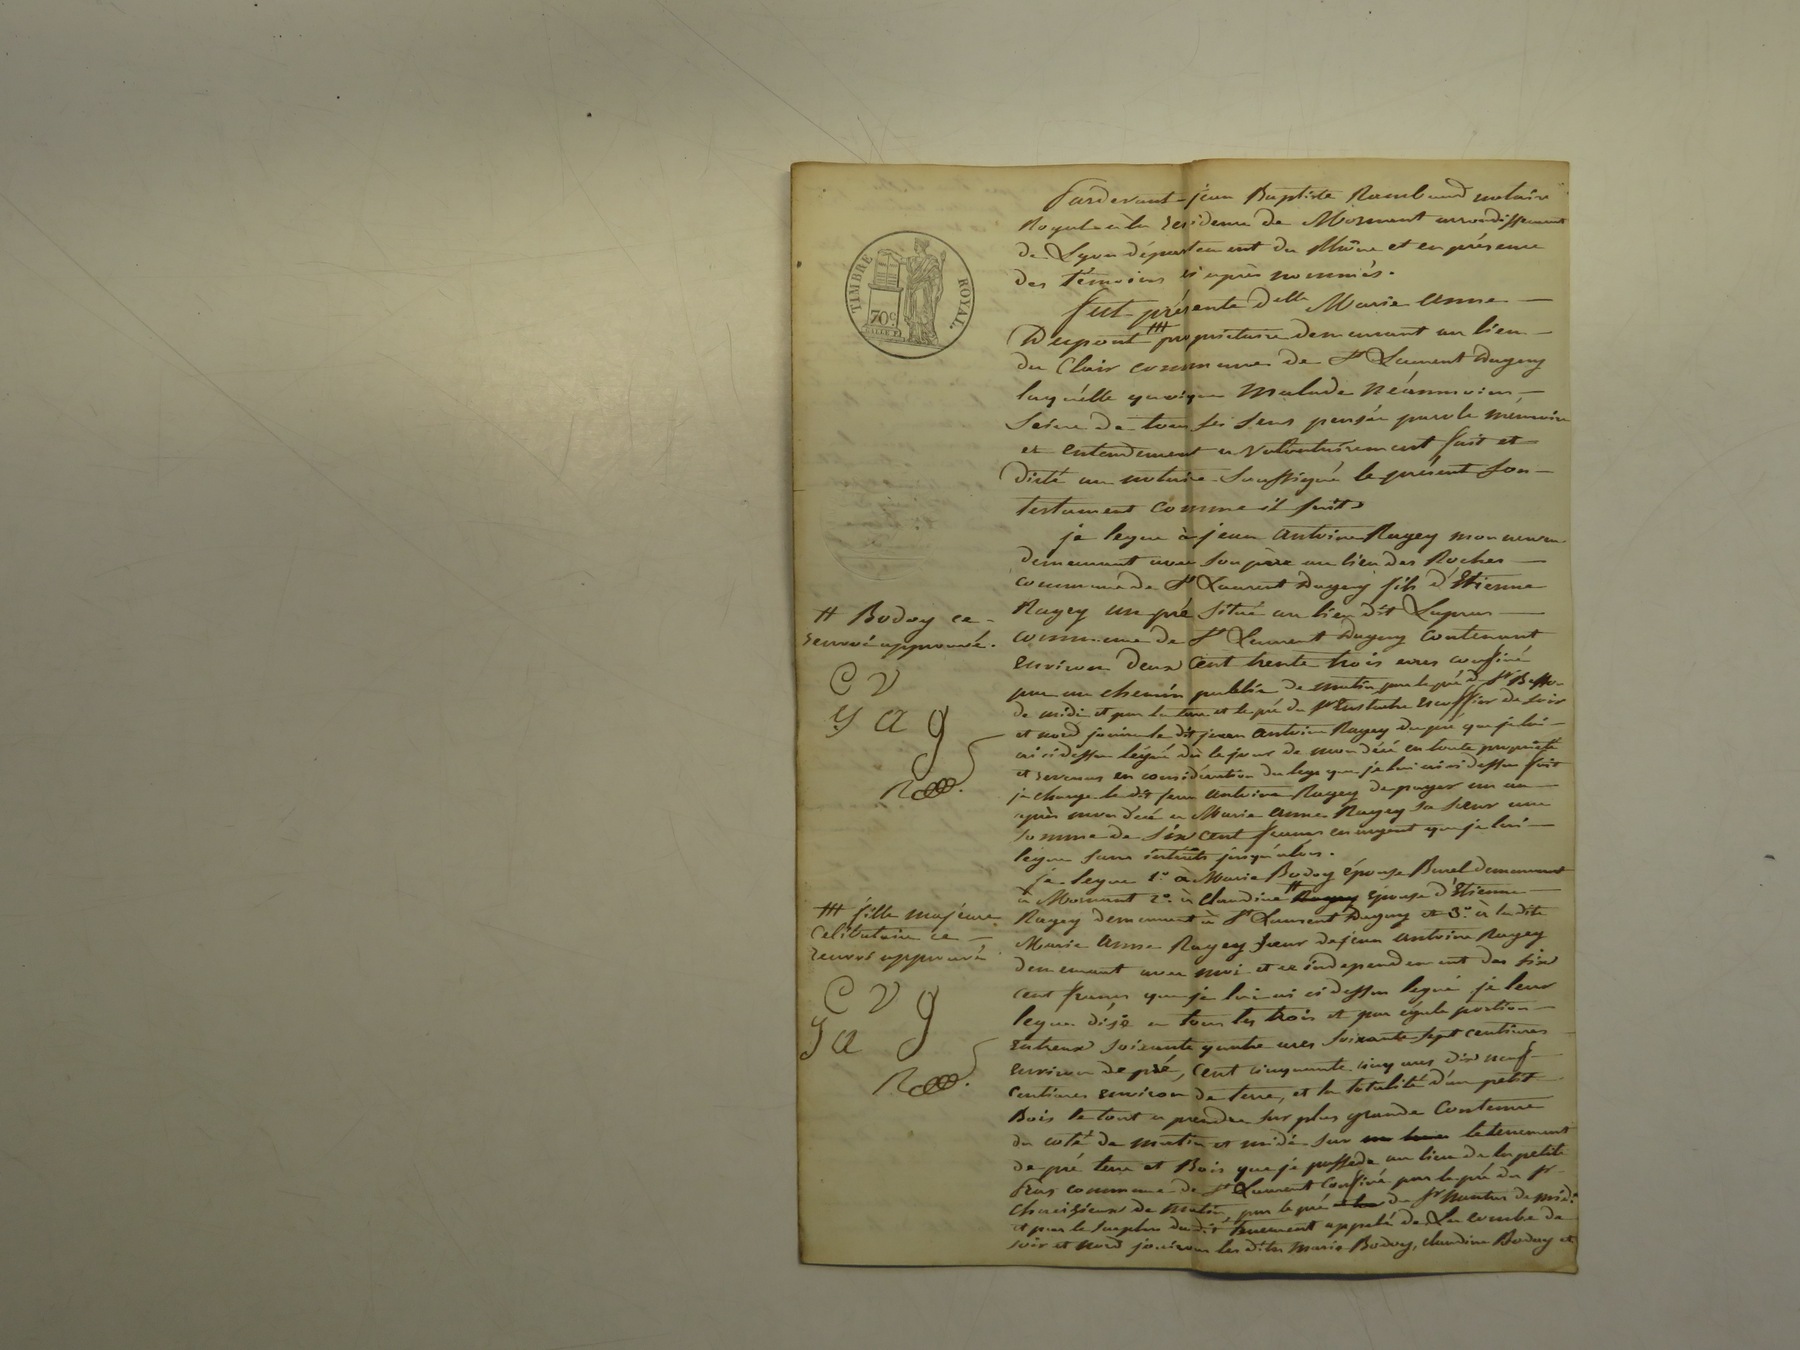 TIMBRE ROYAL.
70c
Pardevant jean Baptiste Rambaud notaire
Royal à la residence de Mornant arrondissement
de Lyon département du Rhône et en présence
des témoins ci après nommés.
fut présente delle Marie anne
propriétaire demeurant au lieu
du Clair commune de St Laurent Dagny
laquélle quoique Malade Néanmoins
Seine de tous ses Sens pensée parole mémoire
et entendement a Volontairement fait et
dicté au notaire Soussigné le présent Son
testament comme il suit
je legue à jean antoine Ragey mon neveu
demeurant avec son père au lieu des Roches
commune de St Laurent Dagny fils d'Etienne
Ragey un pré situé au lieu dit
commune de St Laurent Dagny Contenant
environ deux Cent trente trois ares confiné
par un chemin public de matin par le pré de Sr
de midi et par la terre et le pré du Sr Eustache Escoffier de soir
et nord jouira le dit jean antoine Ragey du pré que je lui
ai ci dessus légué dès le jour de mon décé en toute propriété
et revenus en considération du legs que je lui ai ci dessus fait
je charge le dit jean antoine Ragey de payer un an
après mon décé a Marie anne Ragey sa sœur une
somme de six cent francs en argent que je lui
légue sans intérêts jusqu'alors.
je legue 1° a Marie Bodoy épouse Burel demeurant
à Mornant 2° à Claudine # épouse d'Etienne
Ragey demeurant à St Laurent Dagny et 3° à la dite
Marie anne Ragey sœur de jean antoine Ragey
demeurant avec moi et ce independement des six
cent francs que je lui ai ci dessus legué je leur
legue dije a tous les trois et par égale portion
entreux soixante quatre ares soixante sept centiares
environ de pré, cent cinquante cinq ares dix neuf
centiares environ de terre, et la totalité d'un petit
Bois le tout a prendre sur plus grande Contenue
du coté de matin et midi sur le tenement
de pré terre et Bois que je possede au lieu de la petite
commune de St Laurent Confiné par le pré du Sr
de matin, par le pré de Sr de midi
et par le surplus du dit tenement appelé de La combe de
soir et nord jouiront les dites Marie Bodoy, claudine Bodoy et
# Bodoy ce
renvoi approuvé.
C V
y a g
# fille majeure
Célibataire ce
renvoi approuvé
C V g
y a